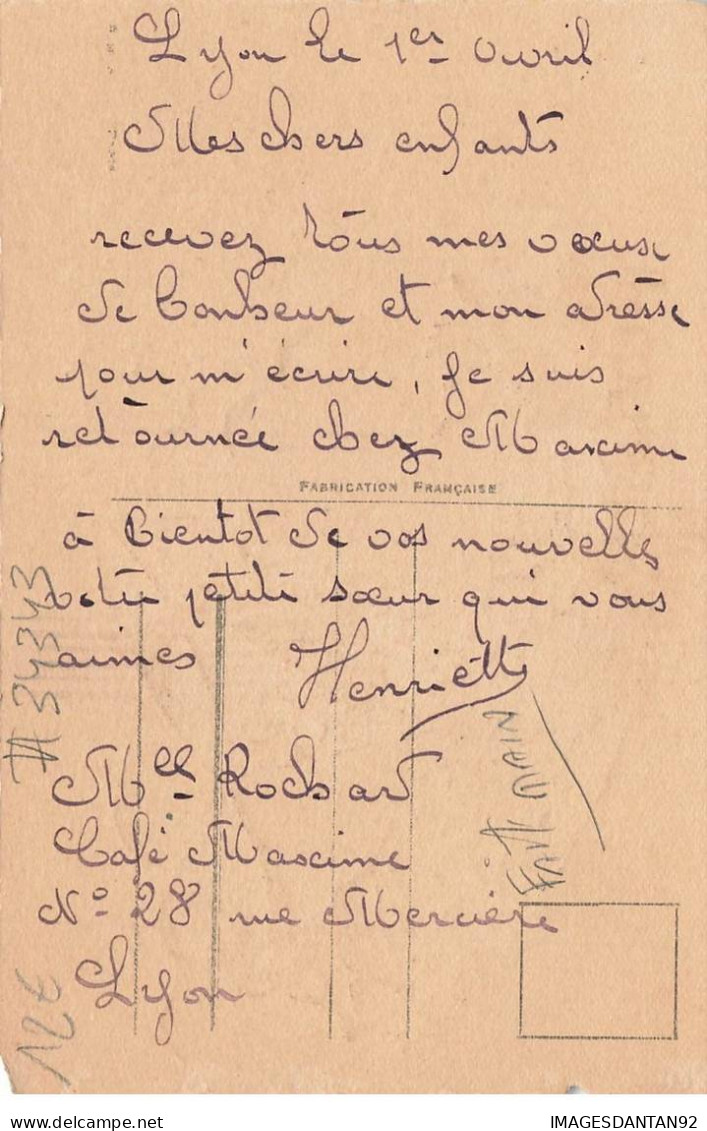 Lyon le 1er Avril
Mes chers enfants
recevez tous mes voeux
de bonheur et mon adresse
pour m'écrire, je suis
retournée chez Maxime
FABRICATION FRANÇAISE
à bientot de vos nouvelles
votre petite sœur qui vous
aimes Henriette
Mlle Rochard
Café Maxime
No 28 rue Mercière
Lyon
34343
FAIT MAIN
12€
IMAGESDANTAN92